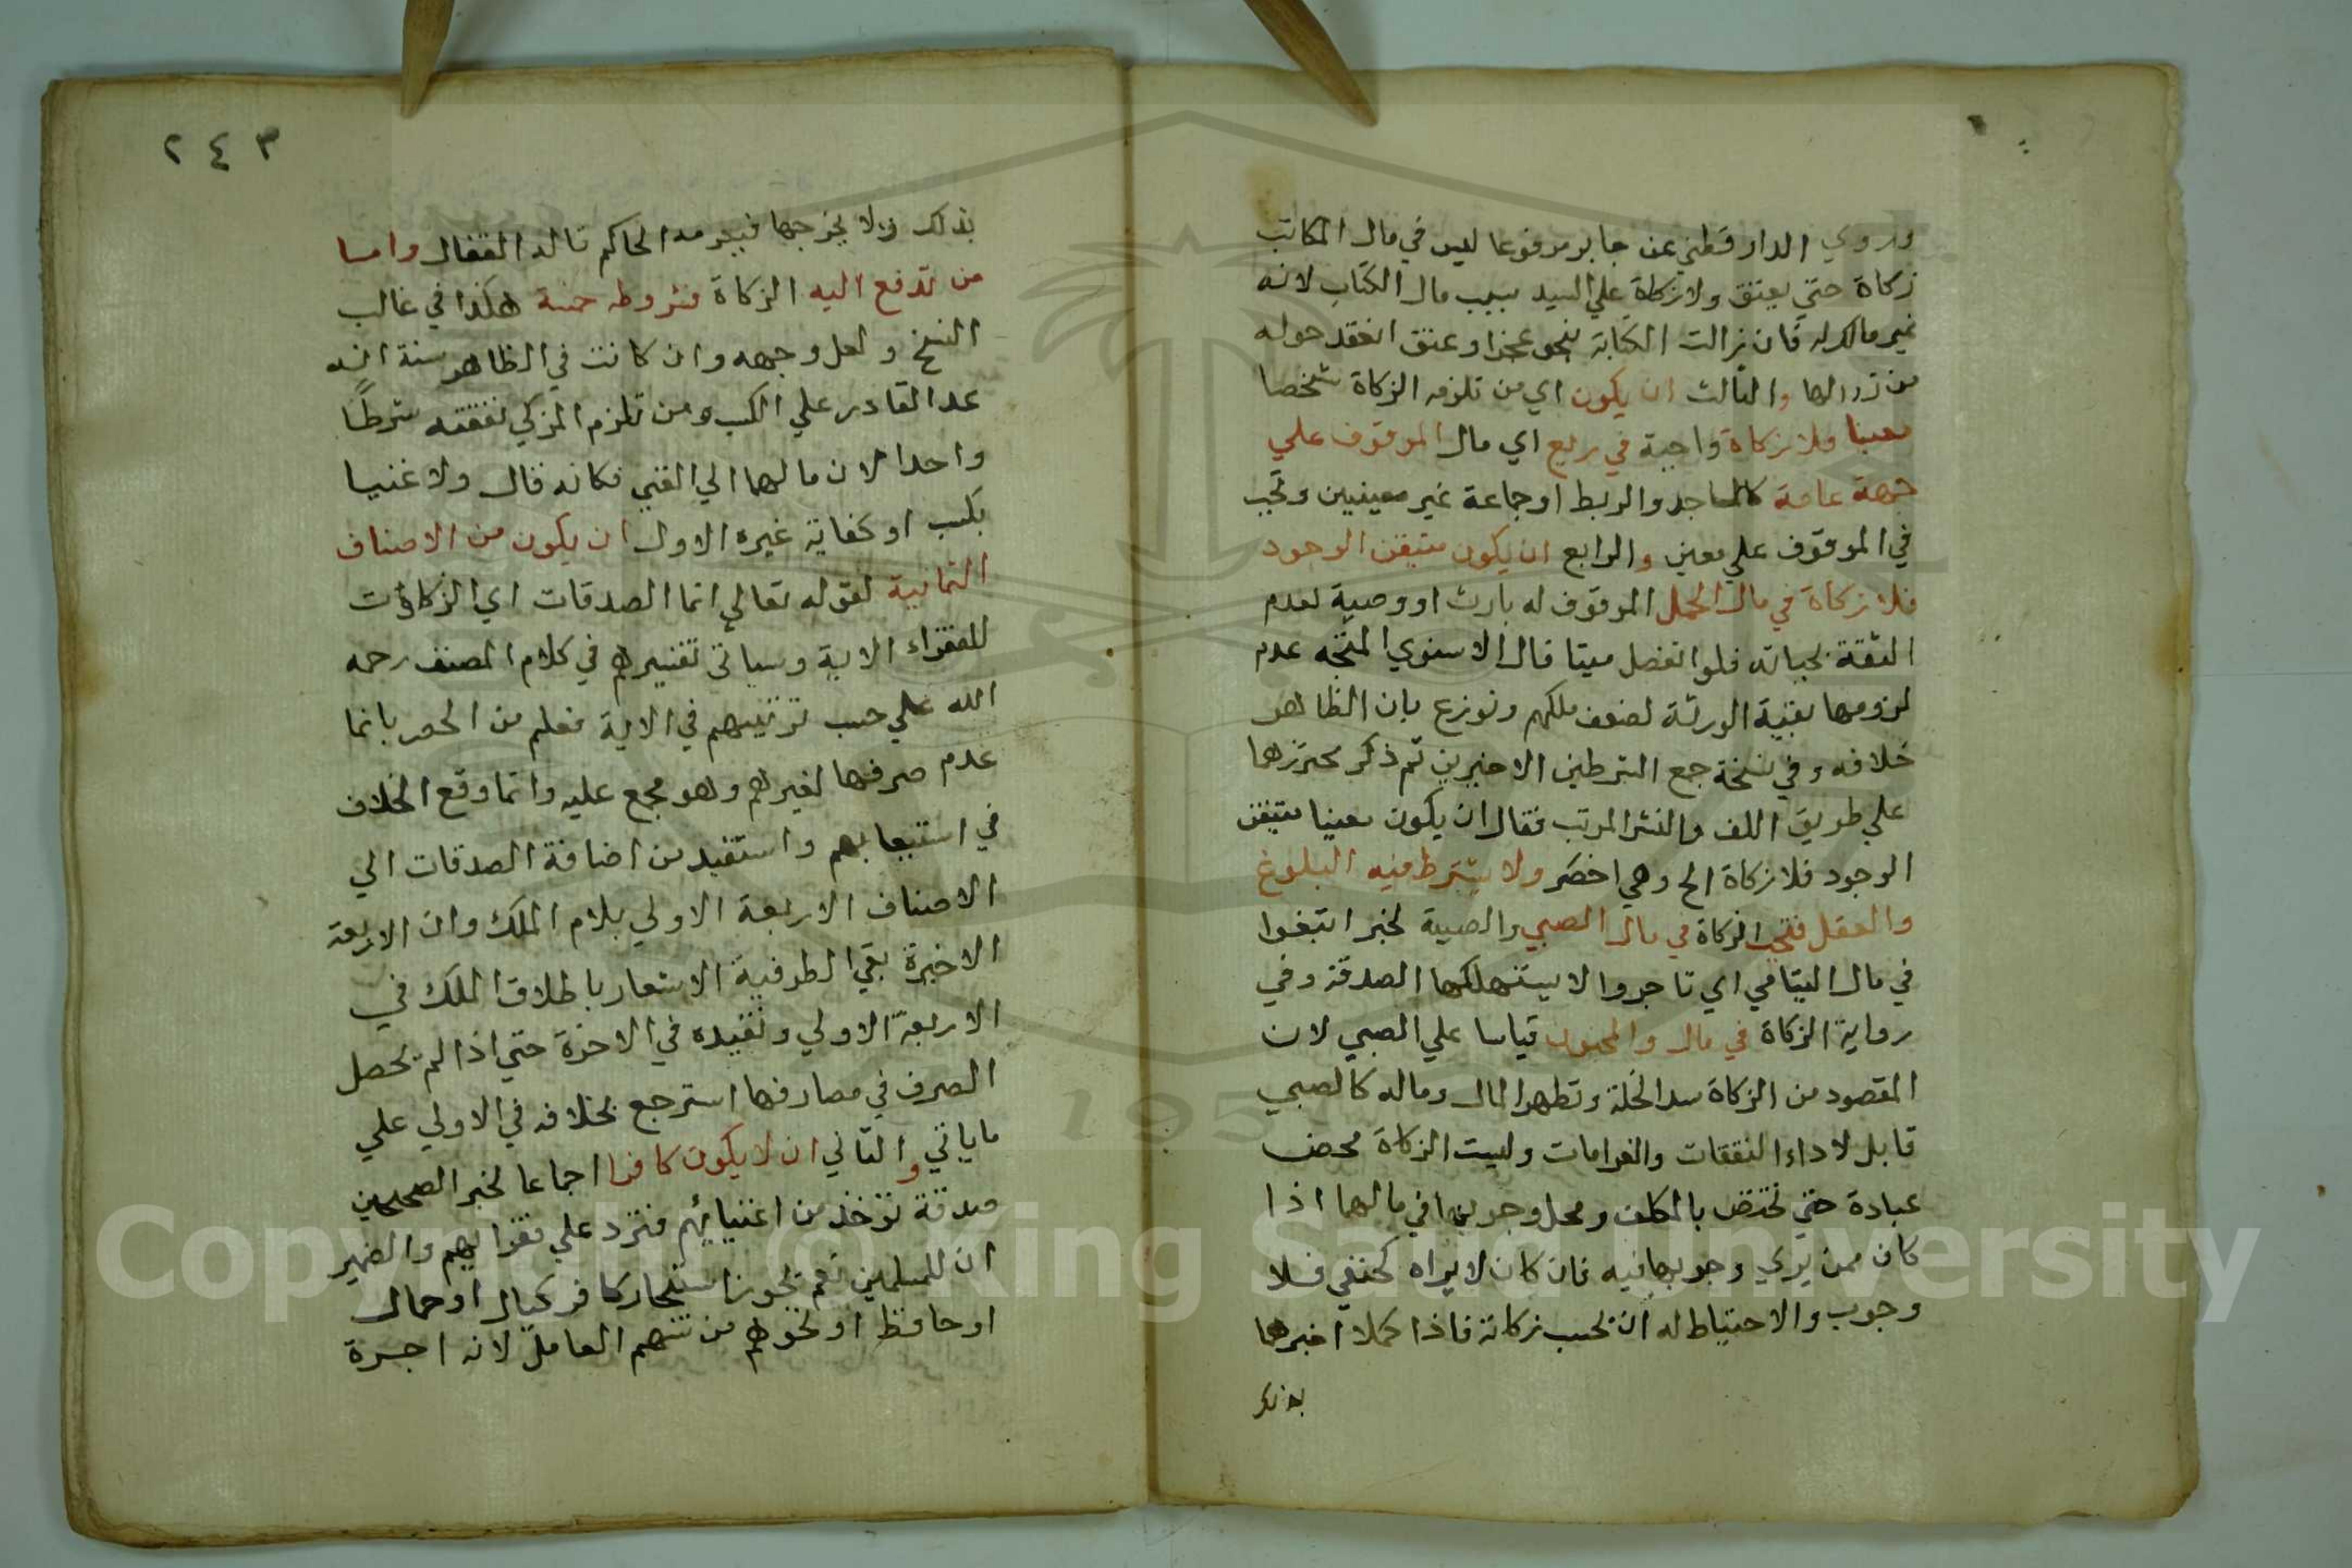 وروي الدارقطني عن جابر مرفوعا ليس في مال المكاتب
زكاة حتي يعتق ولا زكاة علي السيد بسبب مال الكتاب لانه
غير مالك له فان زالت الكتابة بنحو عجز او عتق انعقد حوله
من زوالها والثالث ان يكون اي من تلزمه الزكاة شخصا
معينا فلا زكاة واجبة في ريع اي مال الموقوف علي
جهة عامة كالمساجد والربط او جماعة غير معينين وتجب
في الموقوف علي معين والرابع ان يكون متيقن الوجود
فلا زكاة في مال الحمل الموقوف له بارث او وصية لعدم
الثقة بحياته فلو انفصل ميتا قال الاسنوي المتجه عدم
لزومها بقية الورثة لضعف ملكهم ونوزع بان الظاهر
خلافه وفي نسخة جمع الشرطين الاخيرين ثم ذكر محترزهما
علي طريق اللف والنشر المرتب فقال ان يكون معينا متيقن
الوجود فلا زكاة الخ وهي اخصر ولا يشترط فيه البلوغ
والعقل فتجب الزكاة في مال الصبي والصبية لخبر ابتغوا
في مال اليتامي اي تاجروا لا يستهلكها الصدقة وفي
رواية الزكاة في مال والمجنون قياسا علي الصبي لان
المقصود من الزكاة سد الخلة وتطهر المال وماله كالصبي
قابل لاداء النفقات والغرامات وليست الزكاة محض
عبادة حتي تختص بالمكلف ومحل وجوبها في مالهما اذا
كان ممن يري وجوبها فيه فان كان لا يراه كحنفي فلا
وجوب والاحتياط له ان يحسب زكاته فاذا كملا اخبرهما
بذلك
٢٤٣
بذلك ولا يخرجها فيغرمه الحاكم قاله القفال واما
من تدفع اليه الزكاة فشروطه خمسة هكذا في غالب
النسخ ولعل وجهه وان كانت في الظاهر ستة انه
عد القادر علي الكسب ومن تلزم المزكي نفقته شرطًا
واحدا لان مالهما الي الغني فكانه قال ولا غنيا
بكسب او كفاية غيره الاول ان يكون من الاصناف
الثمانية لقوله تعالي انما الصدقات اي الزكاوت
للفقراء الاية وسياتي تفسيرهم في كلام المصنف رحمه
الله علي حسب ترتيبهم في الاية فعلم من الحصر بانما
عدم صرفها لغيرهم وهو مجمع عليه وانما وقع الخلاف
في استيعابهم واستفيد من اضافة الصدقات الي
الاصناف الاربعة الاولي بلام الملك وان الاربعة
الاخيرة بفي الظرفية الاشعار باطلاق الملك في
الاربعة الاولي وتقييده في الاخرة حتي اذا لم يحصل
الصرف في مصارفها استرجع بخلافه في الاولي علي
ما ياتي والثاني ان لا يكون كافرا اجماعا لخبر الصحيحين
صدقة تؤخذ من اغنيائهم فترد علي فقرائهم والضمير
ان للمسلمين نعم يجوز استئجار كافر كيال او حمال
او حافظ او نحوهم من سهم العامل لانه اجرة
Copyright © King Saud University
1957